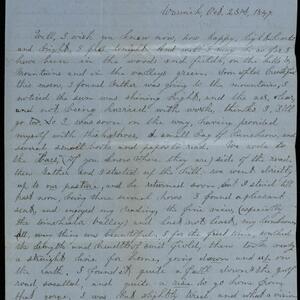 Warwick, Oct. 23rd, 1849.
Well, I wish you knew now, how happy, light hearted
and bright, I feel tonight. And well I may be so, for I
have been in the woods and fields, on the hills &
mountains and in the valleys green. Soon after breakfast
this morn, I found Father was going to the mountains, I
noticed the sun was shining bright, and the air, clear
and not being hurried with work, thinks I, I'll
go too. So I was soon on the way, having provided
myself with the a small bag of luncheon, and
several small books and paper to read. We rode to
the If you know where they are side of the road,
then Father and I started up the hill. We went directly
up to our pasture, and he returned soon, but I staid till
past noon, being there several hours. I found a pleasant
seat, and enjoyed my reading, the fine view, (especially
the Winchester valley) and last not least, my luncheon.
All, were then so beautiful. I, for the first time, walked
the length and breadth of our field, then took nearly
a straight line for home, going down and up on
the earth, I found it quite a fall down the gulf
road, so called, and quite a rise to go home from
that gorge. I was but slightly tired and what a vision